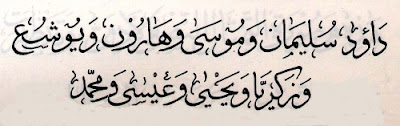 دَاوُدَ سُلَيْمَان وَمُوسَى وَهَارُوْن وَيُوشَع
وَزَكَرِيَّا وَيَحْيَى وَعِيْسَى وَمُحَمَّد